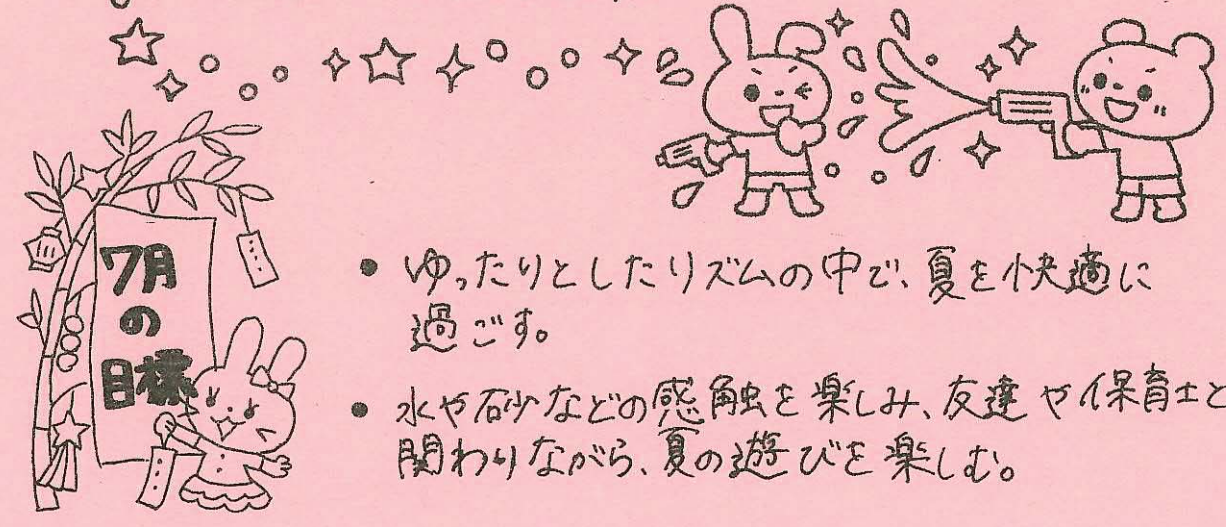 7月
の
目標
• ゆったりとしたリズムの中で、夏を快適に
過ごす。
• 水や砂などの感触を楽しみ、友達や保育士と
関わりながら、夏の遊びを楽しむ。